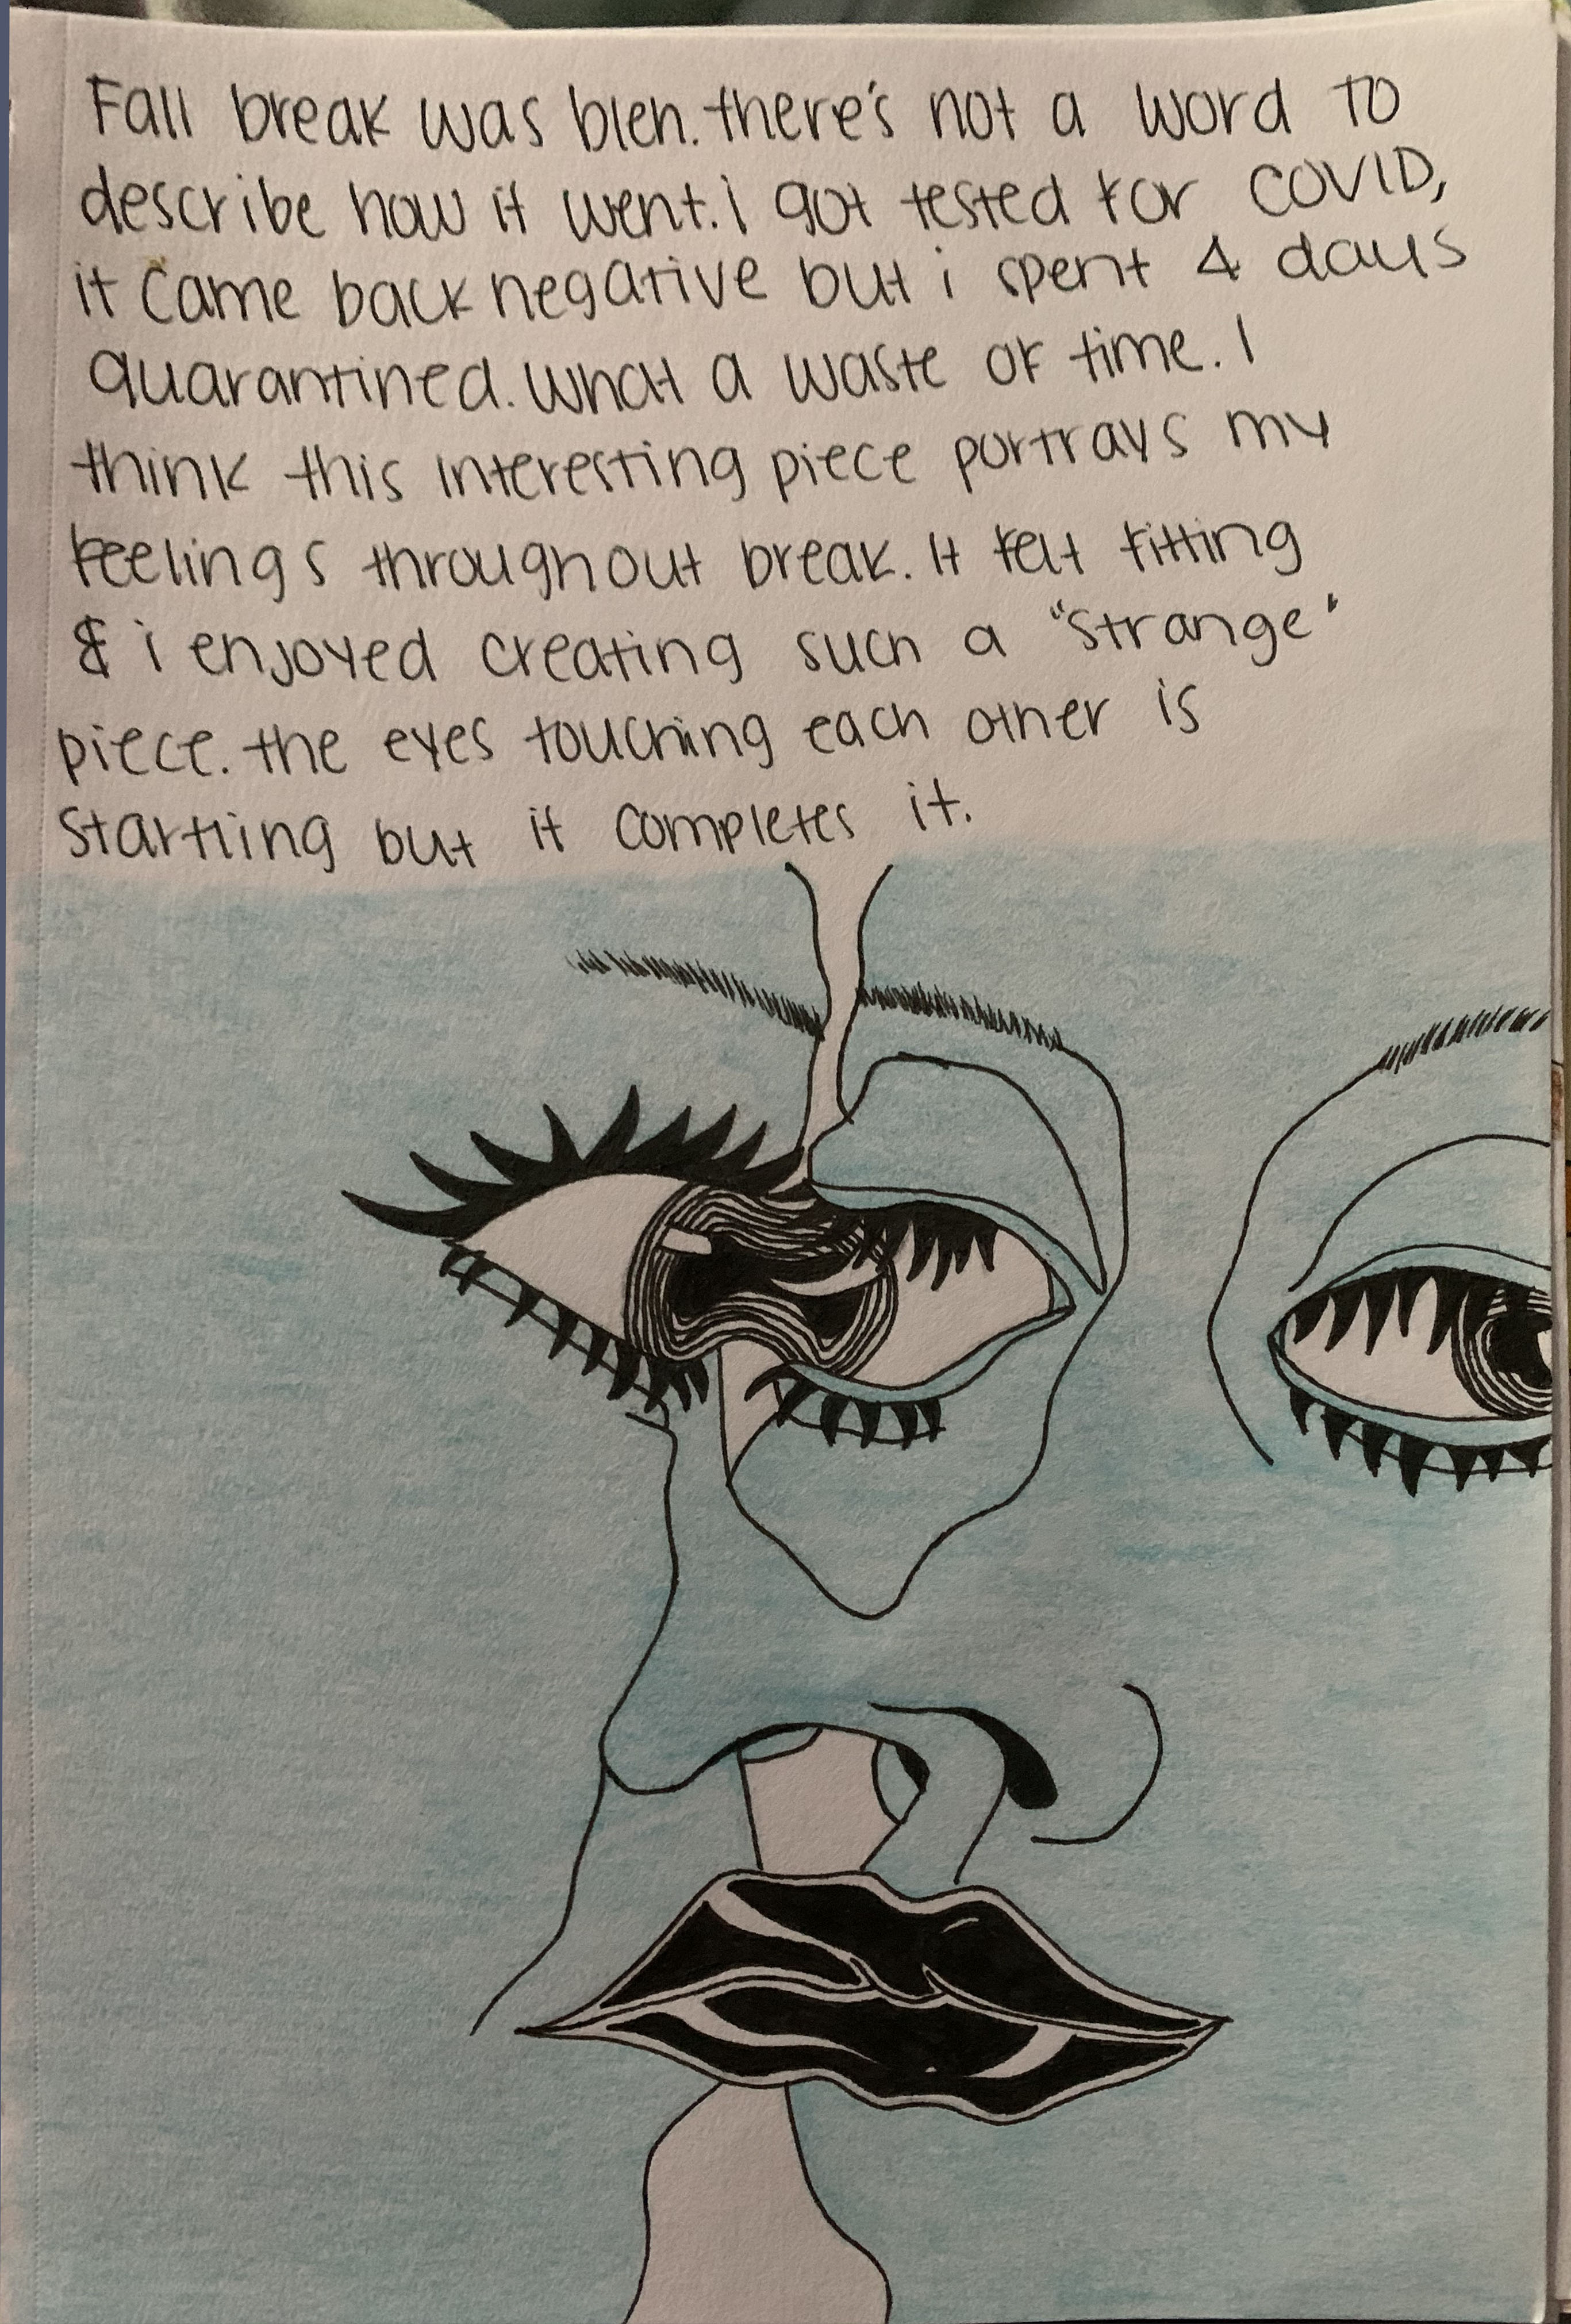 Fall break was bleh. there's not a word to
describe how it went. i got tested for COVID,
it came back negative but i spent 4 days
quarantined. what a waste of time. I
think this interesting piece portrays my
feelings throughout break. It felt fitting
& i enjoyed creating such a "strange"
piece. the eyes touching each other is
startling but it completes it.